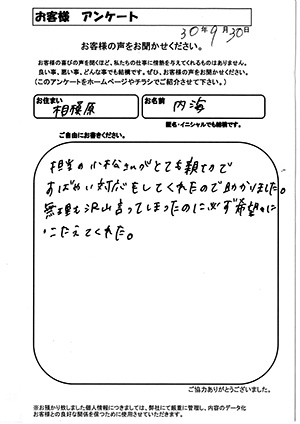 お客様 アンケート
30年9月30日
お客様の声をお聞かせください。
お客様の喜びの声を聞くほど、私たちの仕事に情熱を与えてくれるものはありません。
良い事、悪い事、どんな事でも結構です。ぜひ、お客様の声をお聞かせください。
(このアンケートをホームページやチラシでご紹介させて下さい。)
お住まい
相模原
お名前
内海
匿名・イニシャルでも結構です。
ご自由にお書きください。
担当の小松さんがとても親切で
すばやい対応をしてくれたので助かりました。
無理も沢山言ってしまったのに必ず希望に
こたえてくれた。
ご協力ありがとうございました。
※お預かり致しました個人情報につきましては、弊社にて厳重に管理し、内容のデータ化
お客様との良好な関係を保つために使用させていただきます。